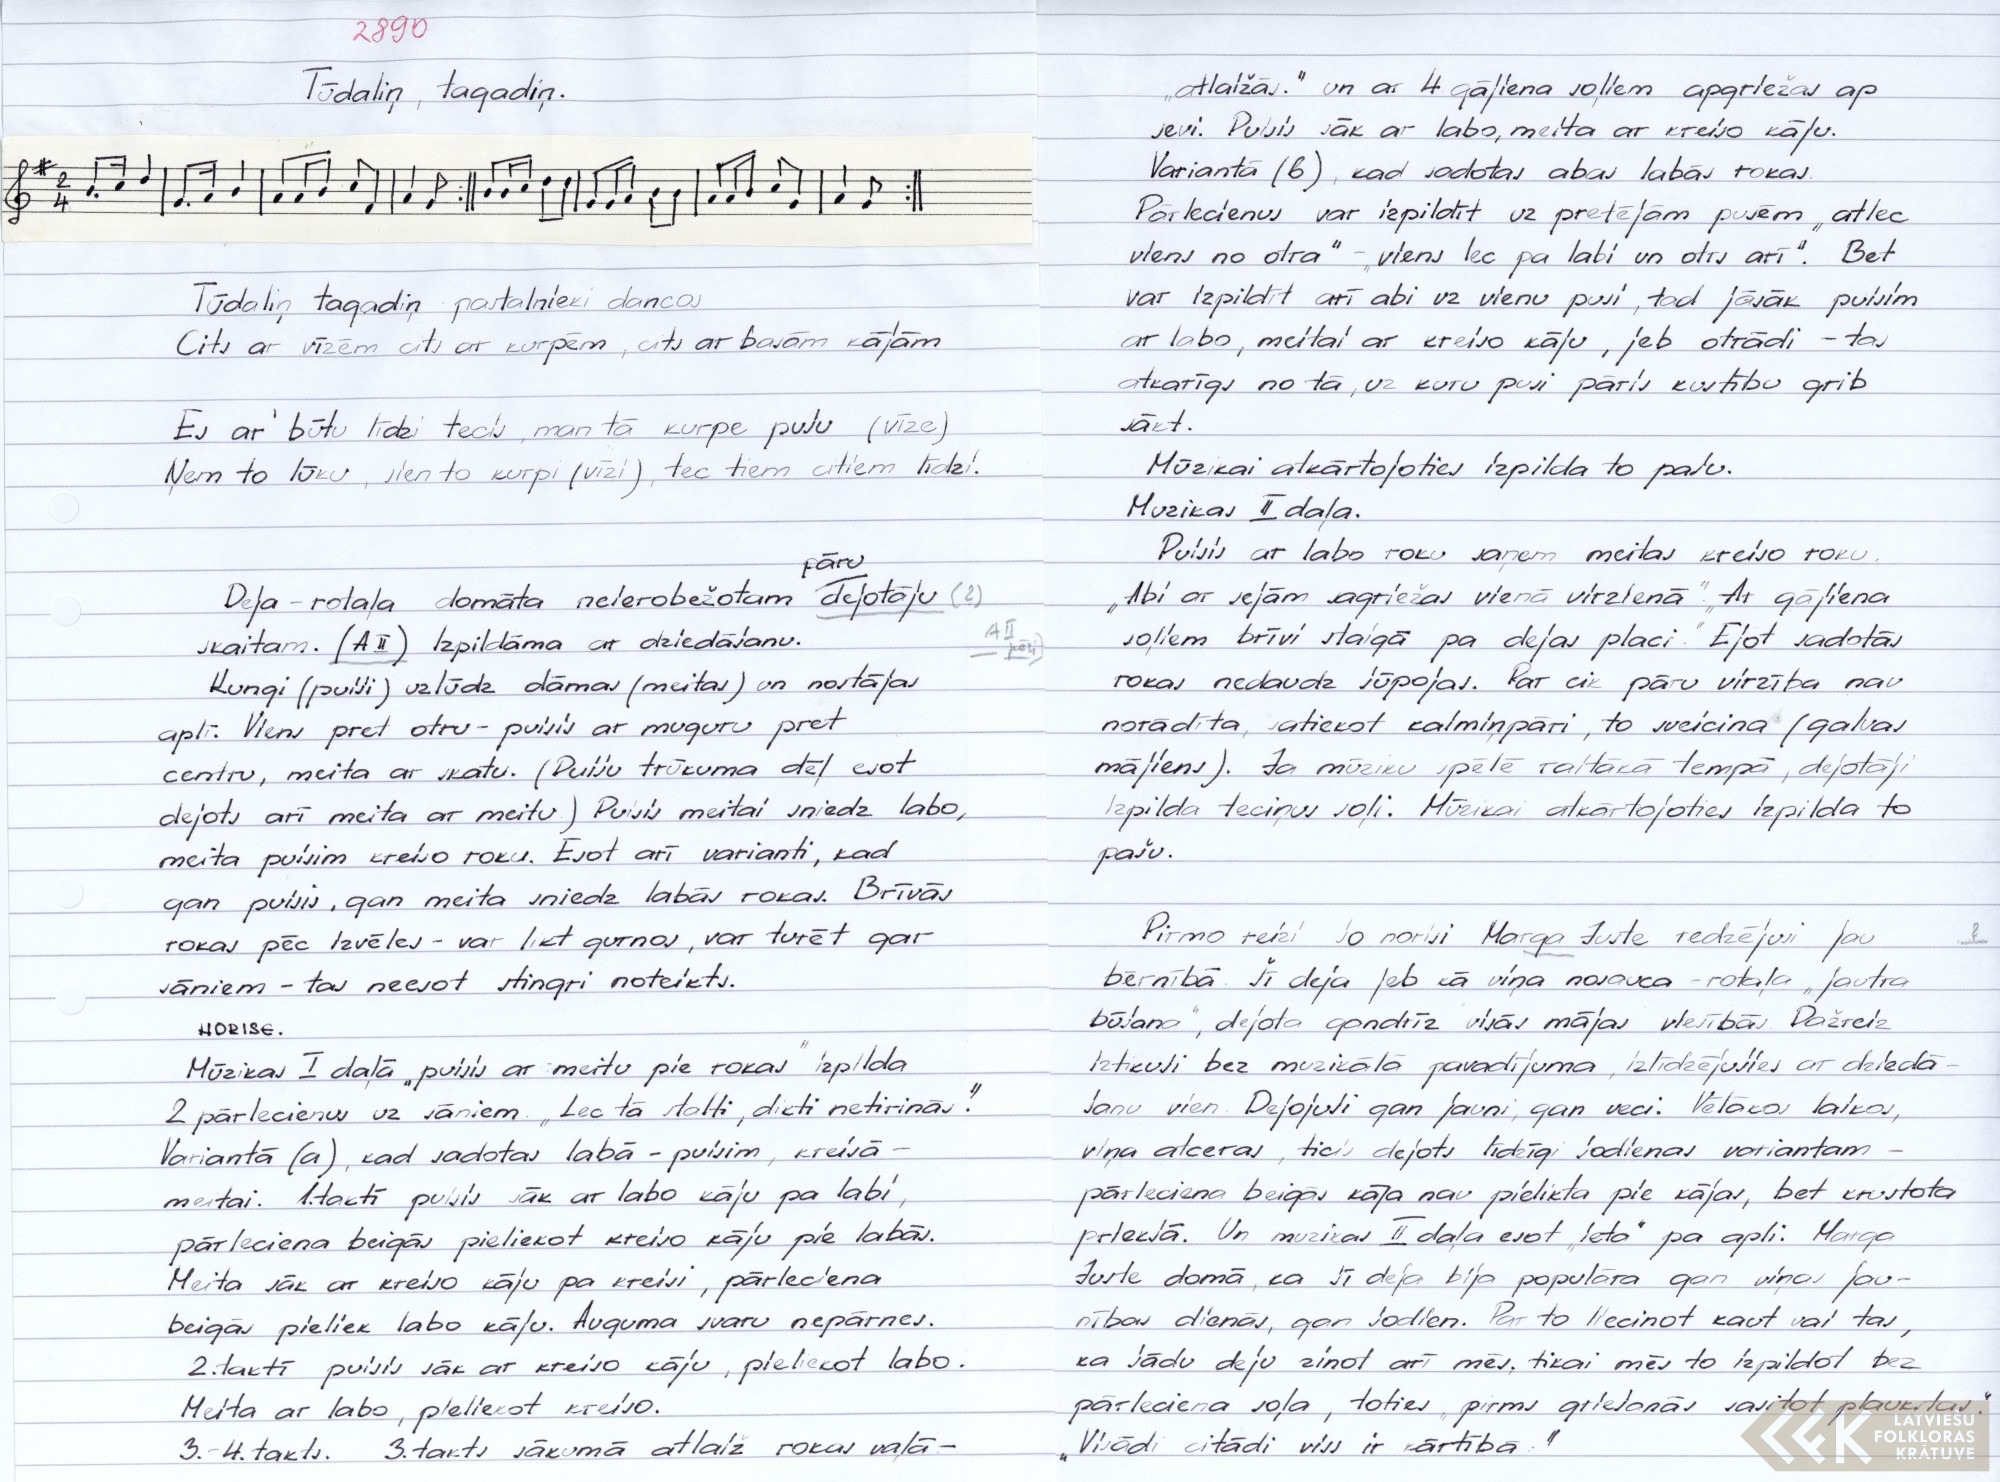 2890
Tūdaliņ, tagadiņ.
2
4
Tūdaliņ tagadiņ pastalnieki dancos
Cits ar vīzēm cits ar kurpēm, cits ar basām kājām
Es ar' būtu līdzi tecis, man tā kurpe pušu (vīze)
Ņem to lūku, sien to kurpi (vīzi), tec tiem citiem līdzi.
pāru
Deja - rotaļa domāta neierobežotam dejotāju (2)
skaitam. (A II) Izpildāma ar dziedāšanu.
A II
Kungi (puiši) uzlūdz dāmas (meitas) un nostājas
aplī. Viens pret otru - puisis ar muguru pret
centru, meita ar skatu. (Puišu trūkuma dēļ esot
dejots arī meita ar meitu) Puisis meitai sniedz labo,
meita puisim kreiso roku. Esot arī varianti, kad
gan puisis, gan meita sniedz labās rokas. Brīvās
rokas pēc izvēles - var likt gurnos, var turēt gar
sāniem - tas neesot stingri noteikts.
NORISE.
Mūzikas I daļā „puisis ar meitu pie rokas" izpilda
2 pārlecienus uz sāniem. „Lec tā stalti, dikti netirinās."
Variantā (a), kad sadotas labā - puisim, kreisā -
meitai. 1.taktī puisis sāk ar labo kāju pa labi,
pārleciena beigās pieliekot kreiso kāju pie labās.
Meita sāk ar kreiso kāju pa kreisi, pārleciena
beigās pieliek labo kāju. Auguma svaru nepārnes.
2.taktī puisis sāk ar kreiso kāju, pieliekot labo.
Meita ar labo, pieliekot kreiso.
3.-4.takts. 3.takts sākumā atlaiž rokas vaļā -
„atlaižās." un ar 4 gājiena soļiem apgriežas ap
sevi. Puisis sāk ar labo, meita ar kreiso kāju.
Variantā (b), kad sadotas abas labās rokas.
Pārlecienus var izpildīt uz pretējām pusēm „atlec
viens no otra" - „viens lec pa labi un otrs arī". Bet
var izpildīt arī abi uz vienu pusi, tad jāsāk puisim
ar labo, meitai ar kreiso kāju, jeb otrādi - tas
atkarīgs no tā, uz kuru pusi pāris kustību grib
sākt.
Mūzikai atkārtojoties izpilda to pašu.
Muzikas II daļa.
Puisis ar labo roku saņem meitas kreiso roku.
„Abi ar sejām sagriežas vienā virzienā". „Ar gājiena
soļiem brīvi staigā pa dejas placi." Ejot sadotās
rokas nedaudz šūpojas. Par cik pāru virzība nav
norādīta, satiekot kaimiņpāri, to sveicina (galvas
mājiens). Ja mūziku spēlē raitākā tempā, dejotāji
izpilda teciņus soļi. Mūzikai atkārtojoties izpilda to
pašu.
Pirmo reizi šo norisi Marga Juste redzējusi jau
bērnībā. Šī deja jeb kā viņa nosauca - rotaļa „jautra
būšana", dejota gandrīz visās mājas viesībās. Dažreiz
iztikuši bez muzikālā pavadījuma, izlīdzējušies ar dziedā-
šanu vien. Dejojuši gan jauni, gan veci. Vēlākos laikos,
viņa atceras, ticis dejots līdzīgi šodienas variantam -
pārleciena beigās kāja nav pielikta pie kājas, bet krustota
priekšā. Un muzikas II daļa esot „ieta" pa apli. Marga
Juste domā, ka šī deja bija populāra gan viņas jau-
nības dienās, gan šodien. Par to liecinot kaut vai tas,
ka šādu deju zinot arī mēs, tikai mēs to izpildot bez
pārleciena soļa, toties „pirms griešanās sasitot plaukstas."
„Visādi citādi viss ir kārtībā."
LATVIEŠU
FOLKLORAS
KRĀTUVE